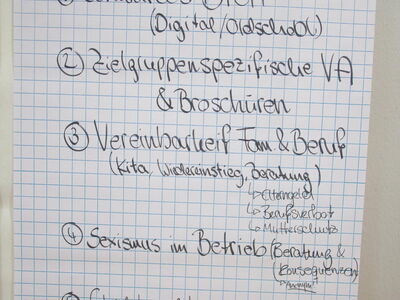 (Digital/Oldschool)
② Zielgruppenspezifische VA
& Broschüren
③ Vereinbarkeit Fam & Beruf
(Kita, Wiedereinstieg, Beratung)
↳ Elterngeld
↳ Berufsverbot
↳ Mutterschutz
④ Sexismus im Betrieb (Beratung &
Konsequenzen)